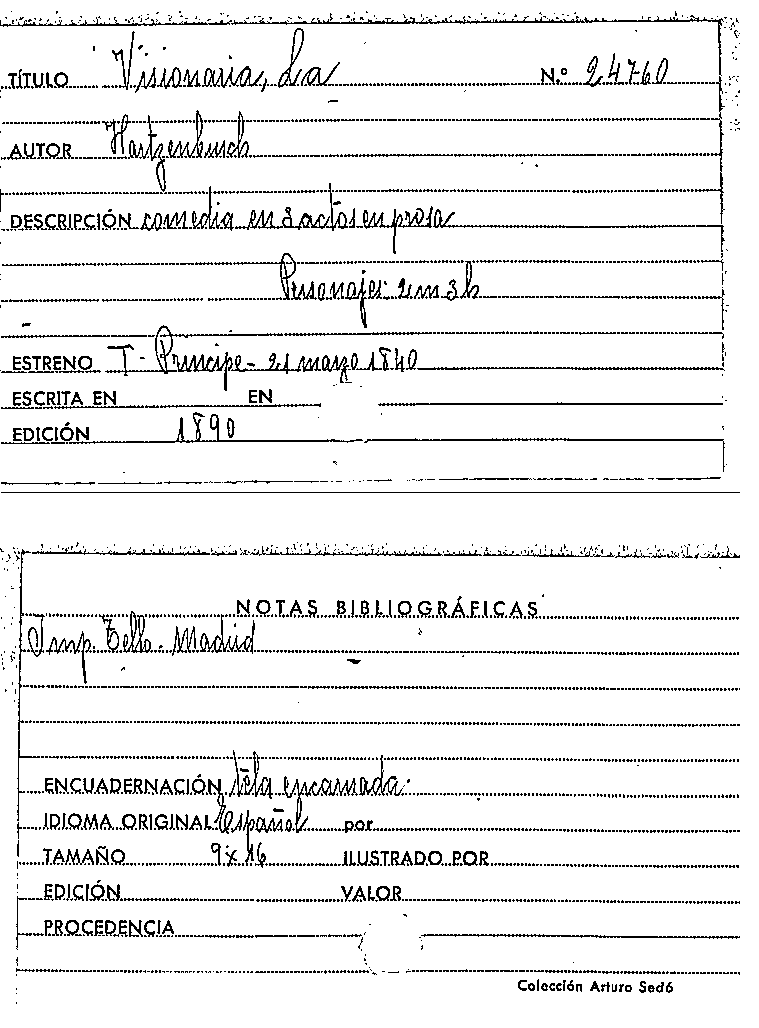 TÍTULO Visionaria, La N.º 24760
AUTOR Hartzenbusch
DESCRIPCIÓN comedia en 3 actos en prosa
Personajes: 2 m 3 h
ESTRENO T - Príncipe - 21 marzo 1840
ESCRITA EN EN
EDICIÓN 1890
NOTAS BIBLIOGRÁFICAS
Imp. Tello. Madrid
ENCUADERNACIÓN tela encarnada.
IDIOMA ORIGINAL Español por
TAMAÑO 9 x 16 ILUSTRADO POR
EDICIÓN VALOR
PROCEDENCIA
Colección Arturo Sedó